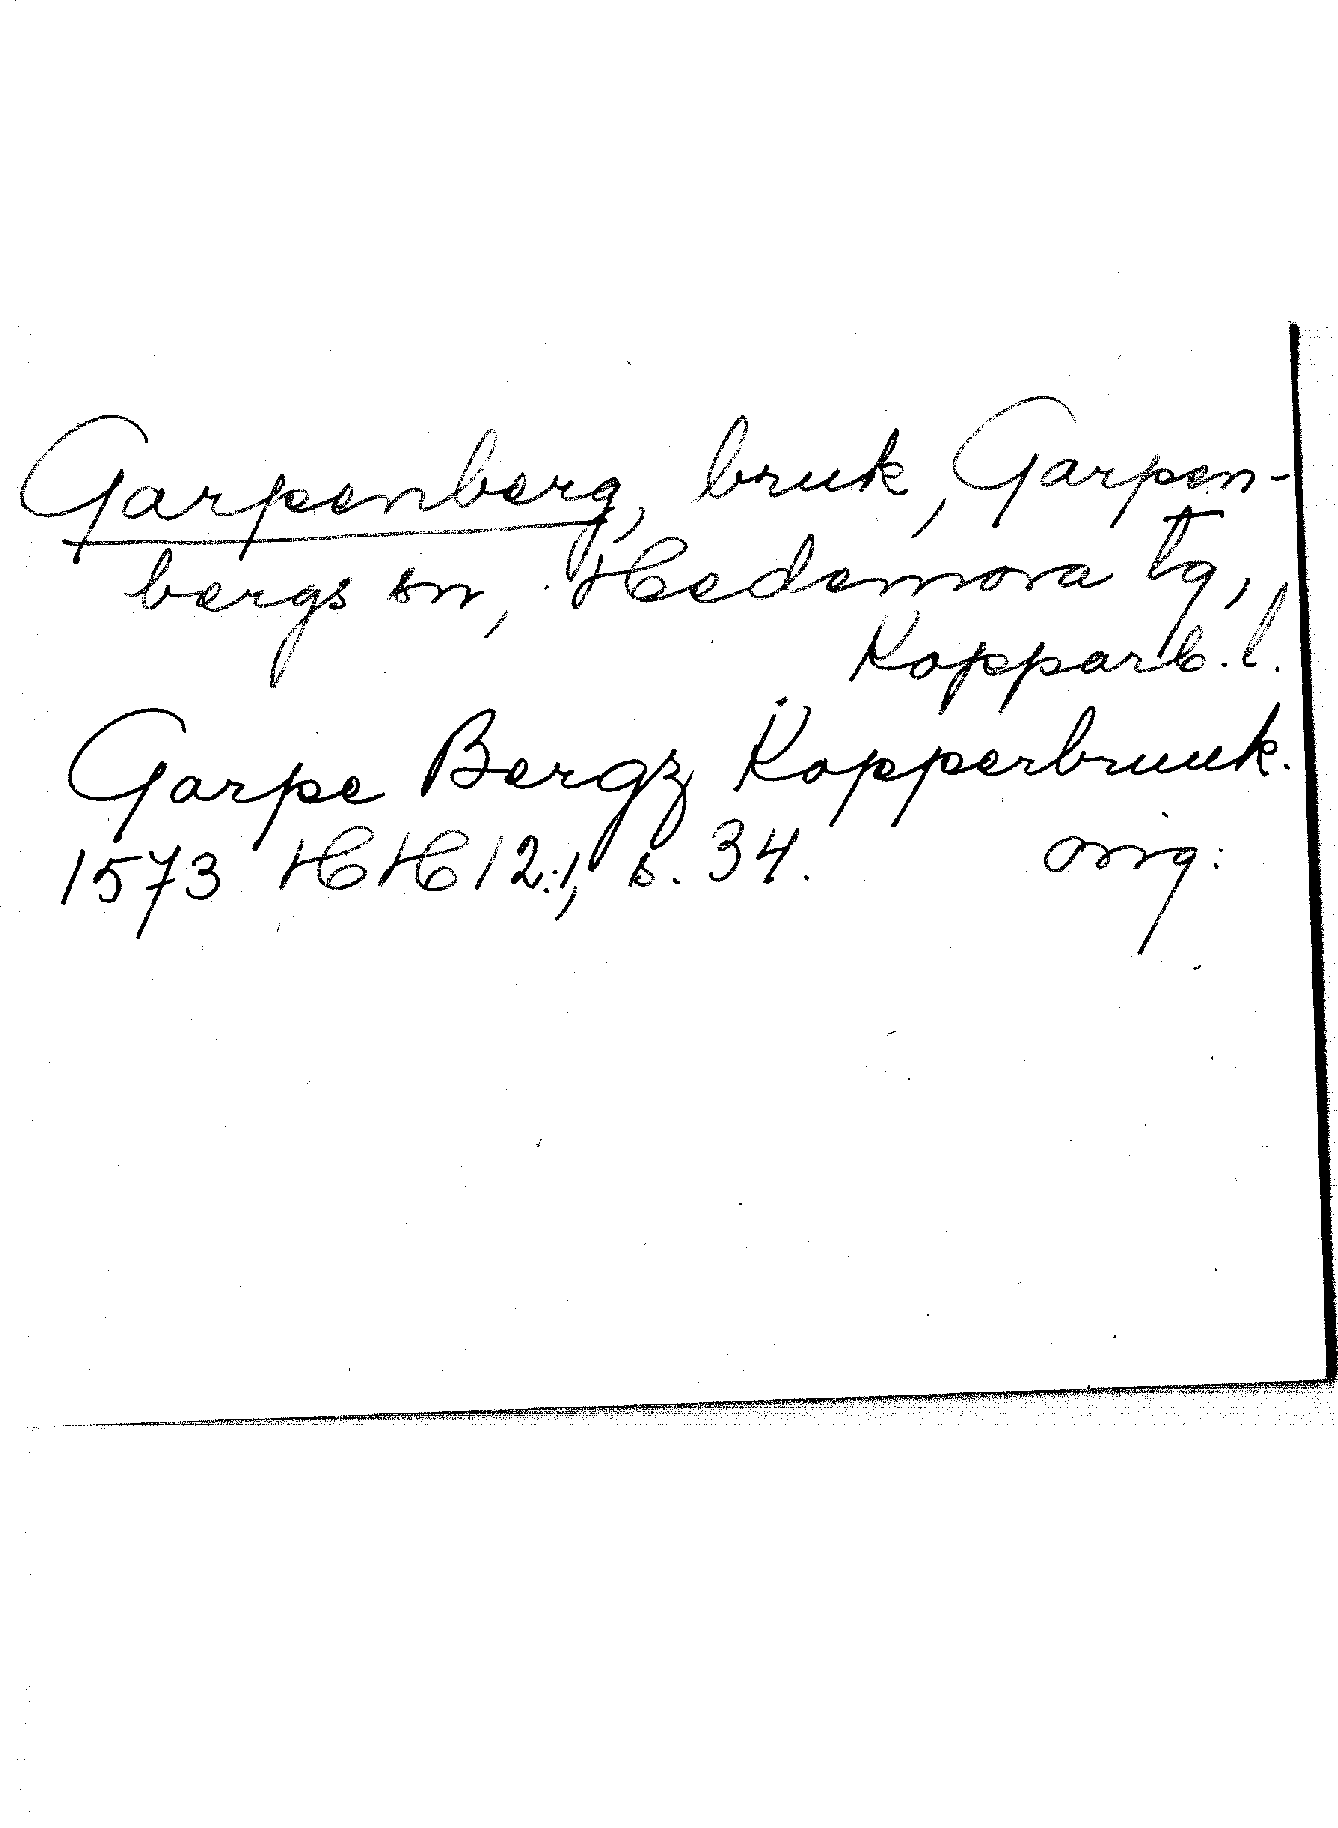 Garpenberg, bruk, Garpen-
bergs sn, Hedemora tg,
Kopparb. l.
Garpe Bergz Kopperbruuk.
1573 HH 12:1, s. 34. orig: